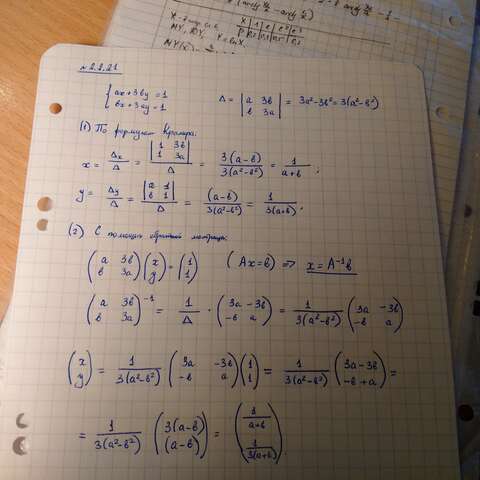 № 2.2.21
{ ax + 3by = 1
bx + 3ay = 1
Δ = | a 3b
b 3a | = 3a² - 3b² = 3(a² - b²)
(1) По формулам Крамера:
x = Δx/Δ = | 1 3b
1 3a | / Δ = 3(a-b) / 3(a²-b²) = 1/(a+b) ;
y = Δy/Δ = | a 1
b 1 | / Δ = (a-b) / 3(a²-b²) = 1/3(a+b) .
(2) С помощью обратной матрицы:
( a 3b
b 3a ) ( x
y ) = ( 1
1 ) ( Ax = b ) ⇒ x = A⁻¹b
( a 3b
b 3a )⁻¹ = 1/Δ · ( 3a -3b
-b a ) = 1/3(a²-b²) ( 3a -3b
-b a )
( x
y ) = 1/3(a²-b²) ( 3a -3b
-b a ) ( 1
1 ) = 1/3(a²-b²) ( 3a-3b
-b+a ) =
= 1/3(a²-b²) ( 3(a-b)
(a-b) ) = ( 1/(a+b)
1/3(a+b) ) .